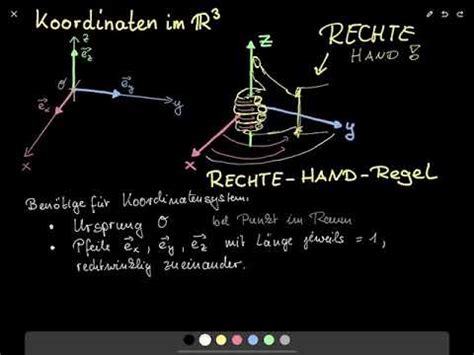 Koordinaten im ℝ³
z
e⃗z
O
e⃗x
e⃗y
y
x
z
RECHTE
HAND!
y
x
RECHTE-HAND-REGEL
Benötige für Koordinatensystem:
• Ursprung O bel Punkt im Raum
• Pfeile e⃗x, e⃗y, e⃗z mit Länge jeweils = 1,
rechtwinklig zueinander.